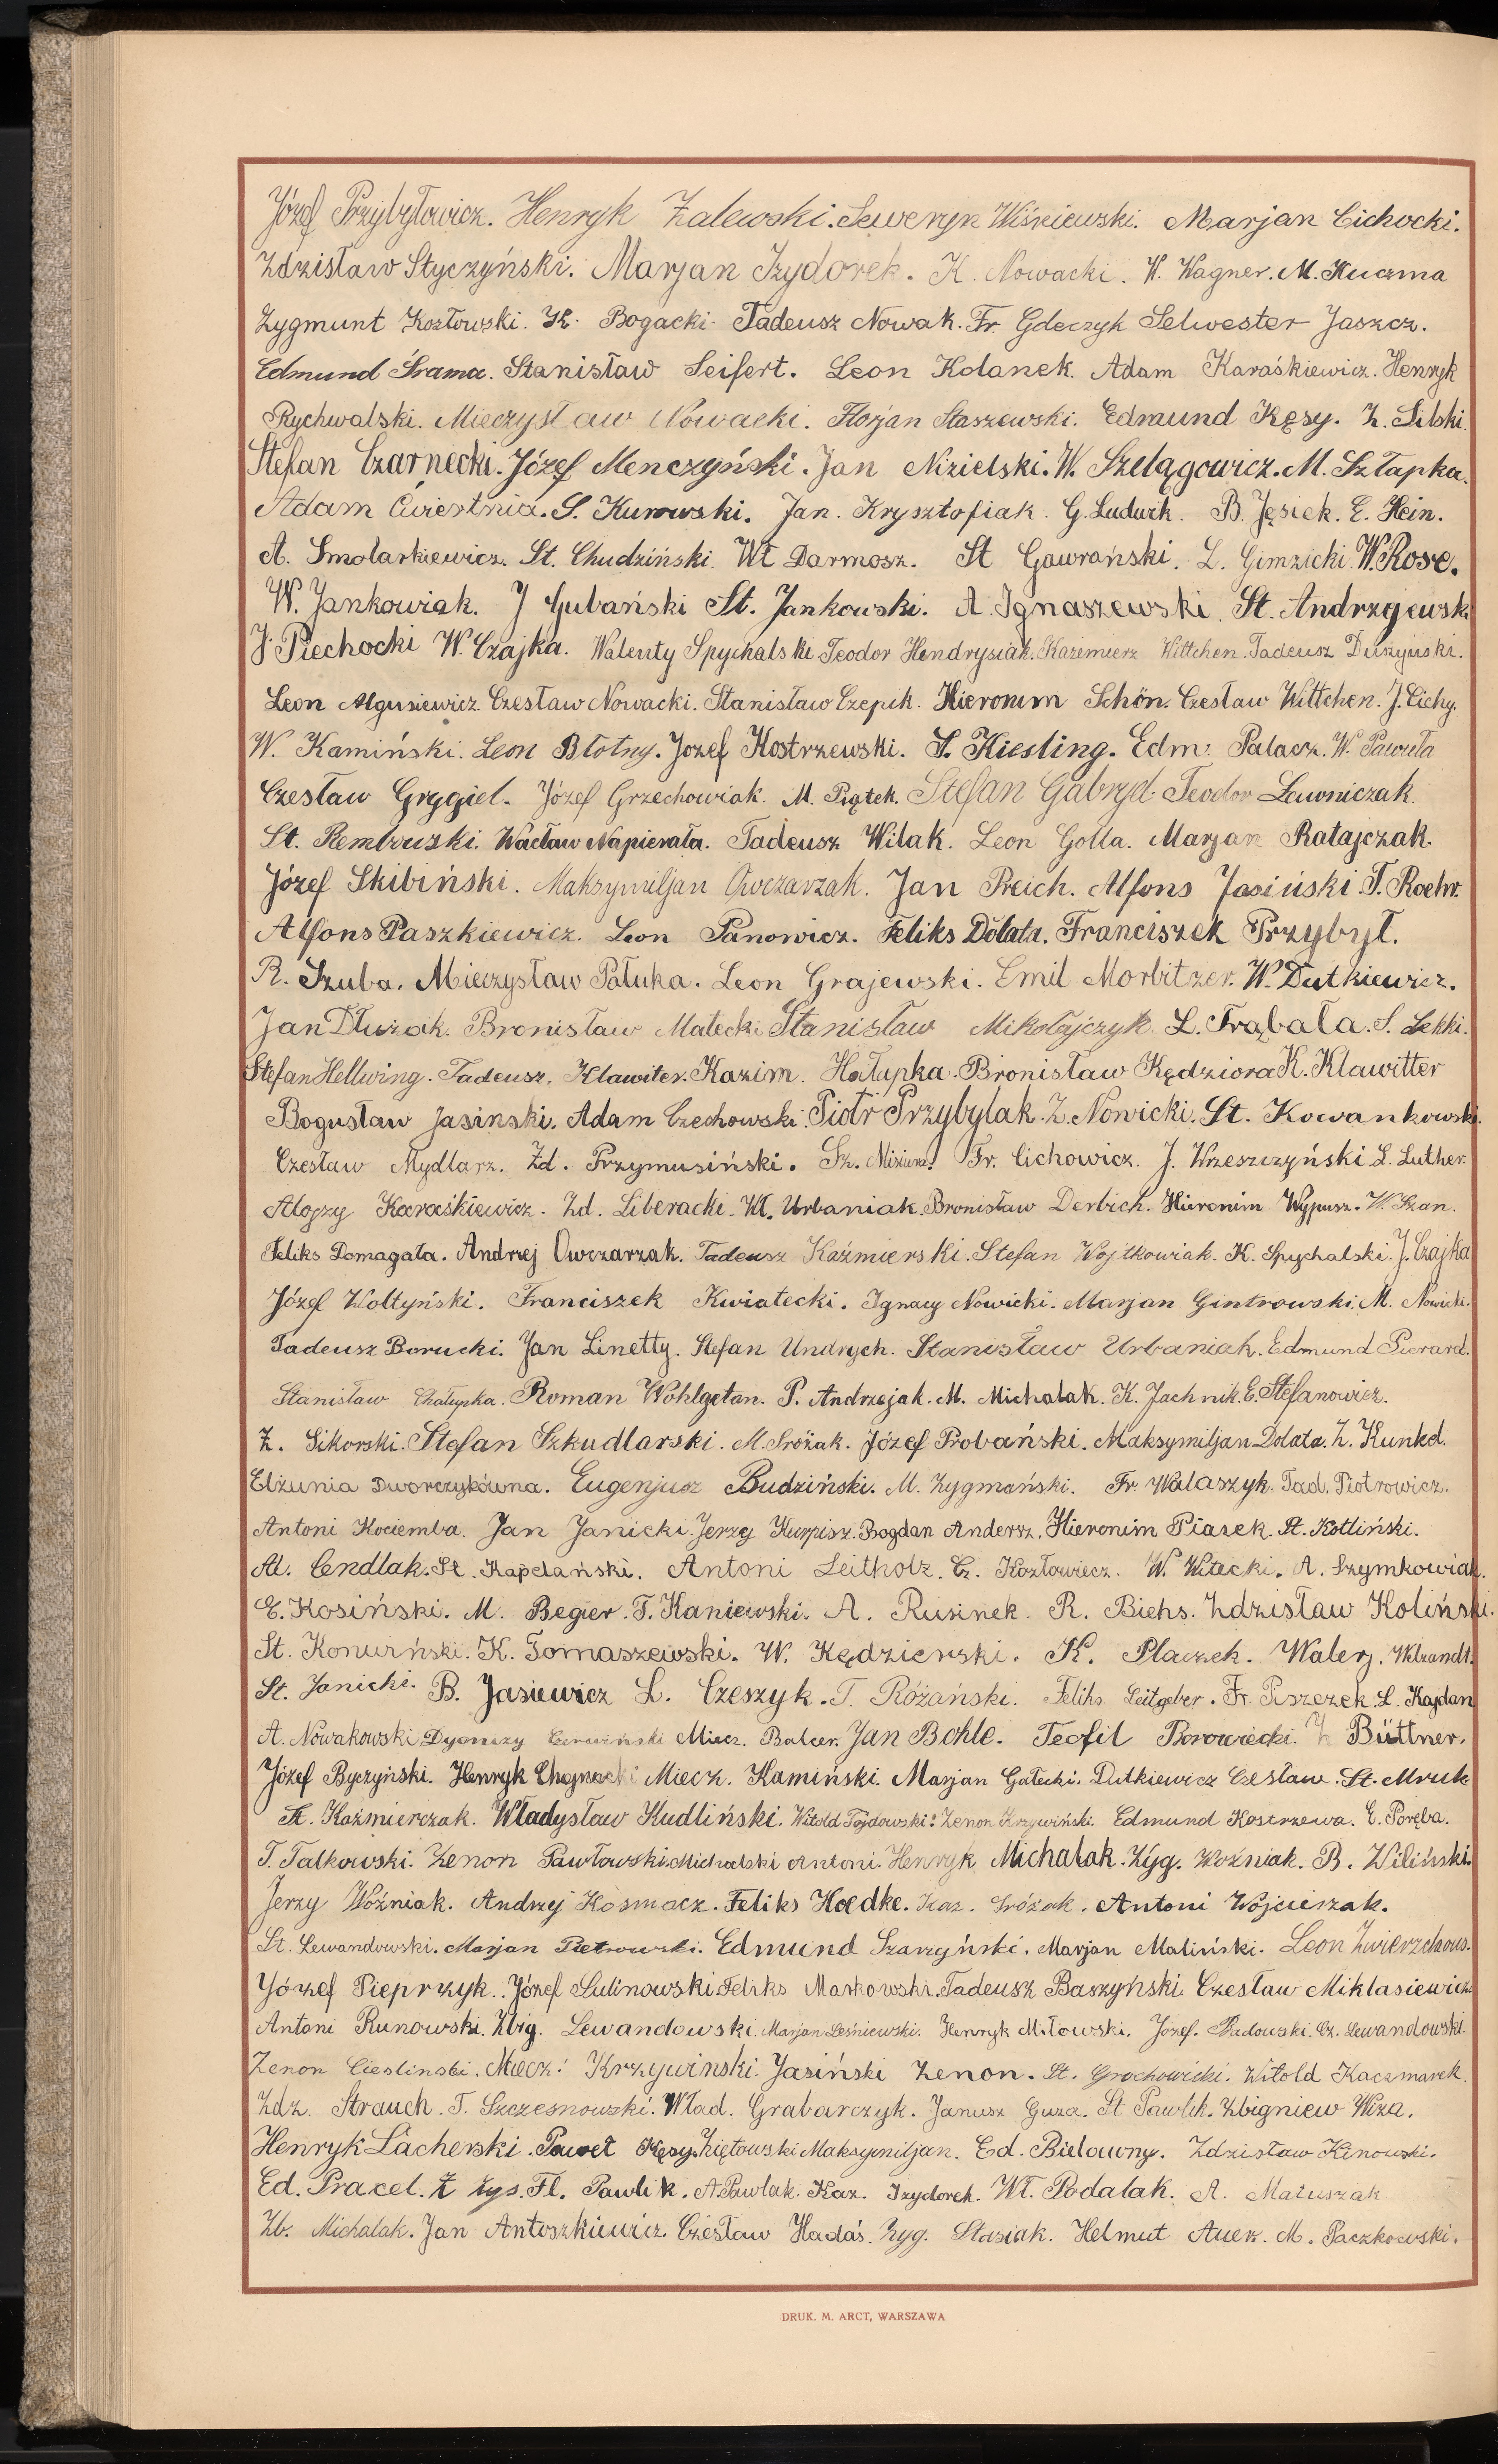 Józef Przybyłowicz. Henryk Zalewski. Seweryn Wiśniewski. Marjan Cichocki.
Zdzisław Styczyński. Marjan Izydorek. K. Nowacki. W. Wagner. M. Kuczma
Zygmunt Kozłowski. K. Bogacki. Tadeusz Nowak. Fr. Gdeczyk Selwester Jaszcz.
Edmund Śrama. Stanisław Seifert. Leon Kolanek. Adam Karaśkiewicz. Henryk
Rychwalski. Mieczysław Nowacki. Florjan Staszewski. Edmund Kęsy. Z. Silski.
Stefan Czarnecki. Józef Menczyński. Jan Nizielski. W. Szelągowicz. M. Szłapka.
Adam Ćwiertnia. S. Kurowski. Jan. Krysztofiak. G. Ludwik. B. Jęsiek. E. Hein.
A. Smolarkiewicz. St. Chudziński. Wł Darmosz. St Gawrański. L. Gimzicki. W. Rose.
W. Jankowiak. J Gubański St. Jankowski. A. Ignaszewski. St. Andrzejewski
J. Piechocki W. Czajka. Walenty Spychalski Teodor Hendrysiak. Kazimierz Wittchen. Tadeusz Duszyński.
Leon Algusiewicz. Czesław Nowacki. Stanisław Czepik. Hieronim Schön. Czesław Wittchen. J. Cichy.
W. Kamiński. Leon Błotny. Jozef Kostrzewski. S. Kiesling. Edm. Palacz. W. Pawuła
Czesław Grygiel. Józef Grzechowiak. M. Piątek. Stefan Gabryd. Teodor Lewniczak.
St. Rembowski. Wacław Napierała. Tadeusz Wilak. Leon Golla. Marjan Ratajczak.
Józef Skibiński. Maksymiljan Owczarzak. Jan Preich. Alfons Jasiński. T. Roehr.
Alfons Paszkiewicz. Leon Panowicz. Feliks Dolata. Franciszek Przybył.
R. Szuba. Mieczysław Pałuka. Leon Grajewski. Emil Morbitzer. W. Dutkiewicz.
Jan Dłużak. Bronisław Małecki Stanisław Mikołajczyk. L. Trąbała. S. Lekki.
Stefan Hellwing. Tadeusz. Klawiter. Kazim. Hałupka. Bronisław Kędziora K. Klawitter
Bogusław Jasinski. Adam Czechowski. Piotr Przybylak. Z. Nowicki. St. Kowankowski.
Czesław Mydlarz. Zd. Przymusiński. Sz. Miziura. Fr. Cichowicz. J. Wrzeszczyński L. Luther.
Alojzy Karaśkiewicz. Zd. Liberacki. Wł. Urbaniak. Bronisław Derbich. Hieronim Wypusz. W. Szan.
Feliks Domagała. Andrzej Owczarzak. Tadeusz Kaźmierski. Stefan Wojtkowiak. K. Spychalski. J. Czajka
Józef Woltyński. Franciszek Kwiatecki. Ignacy Nowicki. Marjan Gintrowski. M. Nowicki.
Tadeusz Borucki. Jan Linetty. Stefan Undrych. Stanisław Urbaniak. Edmund Pierard.
Stanisław Chałupka. Roman Wohlgetan. P. Andrzejak. M. Michalak. K. Jachnik. E. Stefanowicz.
Z. Sikorski. Stefan Szkudlarski. M. Sróżak. Józef Probański. Maksymiljan Dolata. Z. Kunkel.
Elżunia Dworczykówna. Eugenjusz Budziński. M. Zygmański. Fr. Walaszyk. Tad. Piotrowicz.
Antoni Kociemba. Jan Janicki. Jerzy Kurpisz. Bogdan Andersz. Hieronim Piasek. St. Kotliński.
Al. Cendlak. St. Kapelański. Antoni Leitholz. Cz. Kozłowiecz. W. Witecki. A. Szymkowiak.
E. Kosiński. M. Begier. T. Kaniewski. A. Rusinek. R. Biehs. Zdzisław Koliński.
St. Konwiński. K. Tomaszewski. W. Kędzierski. K. Placzek. Walerj. Welzandt.
St. Janicki. B. Jasiewicz L. Czeszyk. T. Różański. Feliks Leitgeber. Fr. Piszczek. L. Kajdan
A. Nowakowski Dyonizy Czerwiński Miecz. Balcer. Jan Bohle. Teofil Borowiecki. Z Büttner.
Józef Byczyński. Henryk Chojnacki Miecz. Kamiński. Marjan Gałecki. Dutkiewicz Czesław. St. Mruk
St. Kaźmierczak. Władysław Kudliński. Witold Tojdowski. Zenon Krzywiński. Edmund Kostrzewa. E. Poręba.
T. Talkowski. Zenon Pawłowski. Michalski Antoni. Henryk Michalak. Zyg. Woźniak. B. Wiliński.
Jerzy Woźniak. Andrzej Kosmacz. Feliks Koedke. Kaz. Sróżak. Antoni Wojcieszak.
St. Lewandowski. Marjan Pietrowski. Edmund Szarzyński. Marjan Maliński. Leon Zwierzchows.
Józef Pieprzyk. Józef Sulinowski Feliks Markowski. Tadeusz Baszyński Czesław Miklasiewicz
Antoni Runowski. Zbig. Lewandowski. Marjan Leśniewski. Henryk Miłowski. Józef. Radowski. Cz. Lewandowski.
Zenon Cieslinski. Miecz. Krzywinski. Jasiński Zenon. St. Grochowicki. Witold Kaczmarek.
Zdz. Strauch. T. Szczesnowski. Wład. Grabarczyk. Janusz Guza. St Pawlik. Zbigniew Wiza.
Henryk Lacherski. Paweł Kęsy. Ziętowski Maksymiljan. Ed. Bielawny. Zdzisław Kinowski.
Ed. Pracel. Z Łys. Fl. Pawlik. A. Pawlak. Kaz. Izydorek. Wł. Podalak. A. Matuszak
Zb. Michalak. Jan Antoszkiewicz. Czesław Hadaś. Zyg. Stasiak. Helmut Auer. M. Paczkowski.
DRUK. M. ARCT, WARSZAWA